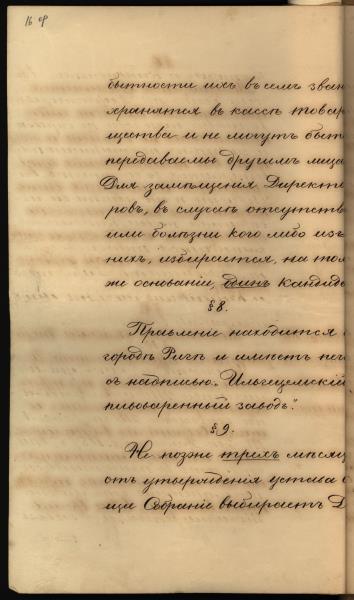 16 об
бытности ихъ въ семъ зван
хранятся въ кассѣ товар
щества и не могутъ быть
передаваемы другимъ лица
Для замѣщенія Директо
ровъ, въ случаѣ отсутств
или болѣзни кого либо изъ
нихъ, избирается, на том
же основаніи, одинъ кандида
§ 8.
Правленіе находится
городѣ Ригѣ и имѣетъ печ
съ надписью: „Ильгецемскій
пивоваренный заводъ".
§ 9.
Не позже трехъ мѣсяц
отъ утвержденія устава о
щее Собраніе выбираетъ Д